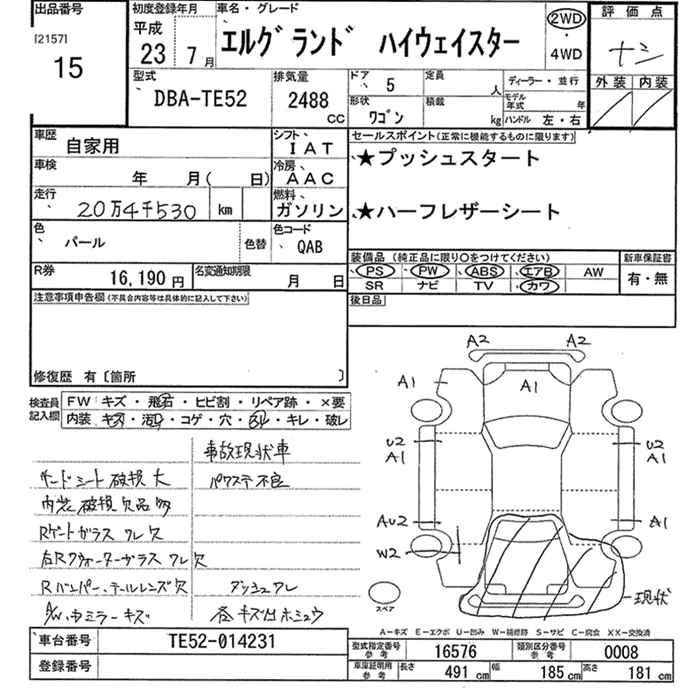 出品番号 初度登録年月 車名・グレード 評価点
[2157] 15 平成 23 7月 エルグランド ハイウェイスター 2WD ・ 4WD ナシ
外装 内装
型式 DBA-TE52 排気量 2488 CC ドア 5 定員 人 ディーラー・並行
形状 ワゴン 積載 kg モデル年式 年 ハンドル 左・右
車歴 自家用 シフト IAT セールスポイント(正常に機能するものに限ります)
車検 年 月( 日) 冷房 AAC ★プッシュスタート
走行 20万4千530 km 燃料 ガソリン ★ハーフレザーシート
色 パール 色替 色コード QAB
装備品 (純正品に限り○をつけてください) 新車保証書
PS PW ABS エアB AW 有・無
SR ナビ TV カワ
R券 16,190円 名変通知期限 月 日
後日品
注意事項申告欄(不具合内容等は具体的に記入して下さい)
修復歴 有〔箇所 〕
検査員記入欄 FW キズ・飛石・ヒビ割・リペア跡・×要
内装 キズ・ ・コゲ・穴・ ・キレ・破レ
事故現状車
サードシート破損大 パワステ不良
内装破損欠品多
Rゲートガラスワレ欠
右Rクォーターガラスワレ欠
Rバンパー、テールレンズ欠 ダッシュワレ
A/W、ミラーキズ 各キズ凹
A2 A2
A1 A1 A1
U2 A1 U2 A1
AU2 A1
W2
現状
スペア
A-キズ E-エクボ U-凹み W-補修跡 S-サビ C-腐食 XX-交換済
車台番号 TE52-014231 型式指定参考 16576 類別区分番号参考 0008
登録番号 車庫証明用参考 長さ 491cm 幅 185cm 高さ 181cm